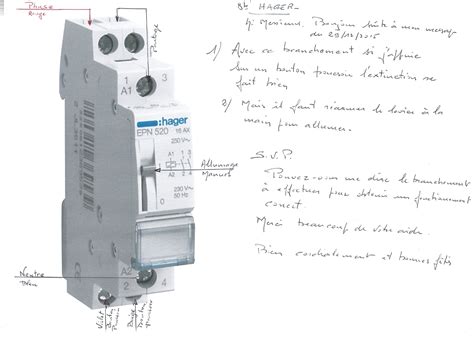 Phase
Rouge
Sté HAGER-
Messieurs. Bonjour suite à mon message
du 29/12/2015
1) Avec ce branchement si j'appuie
sur un bouton poussoir l'extinction se
fait bien
2) Mais il faut réarmer le levier à la
main pour allumer.
S.V.P.
Pouvez-vous me dire le branchement
à effectuer pour obtenir un fonctionnement
correct.
Merci beaucoup de votre aide.
Bien cordialement et bonnes fêtes
1 3
A1
:hager
EPN 520
16 AX
250 V~
A1 1 3
A2 2 4
Allumage
Manuel
230 V~
50 Hz
0
Neutre
Bleu
A2
2 4
Violet
Bouton
Poussoir
Bouton
poussoir